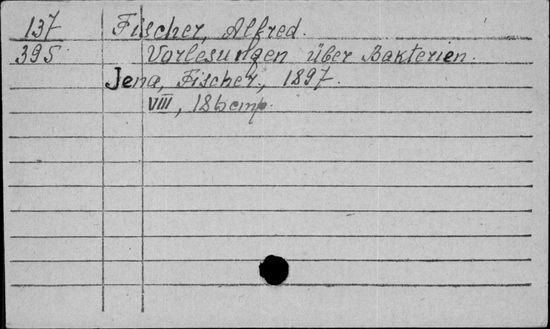 137 Fischer, Alfred.
395 Vorlesungen über Bakterien.
Jena, Fischer, 1897.
VIII, 186 стр.